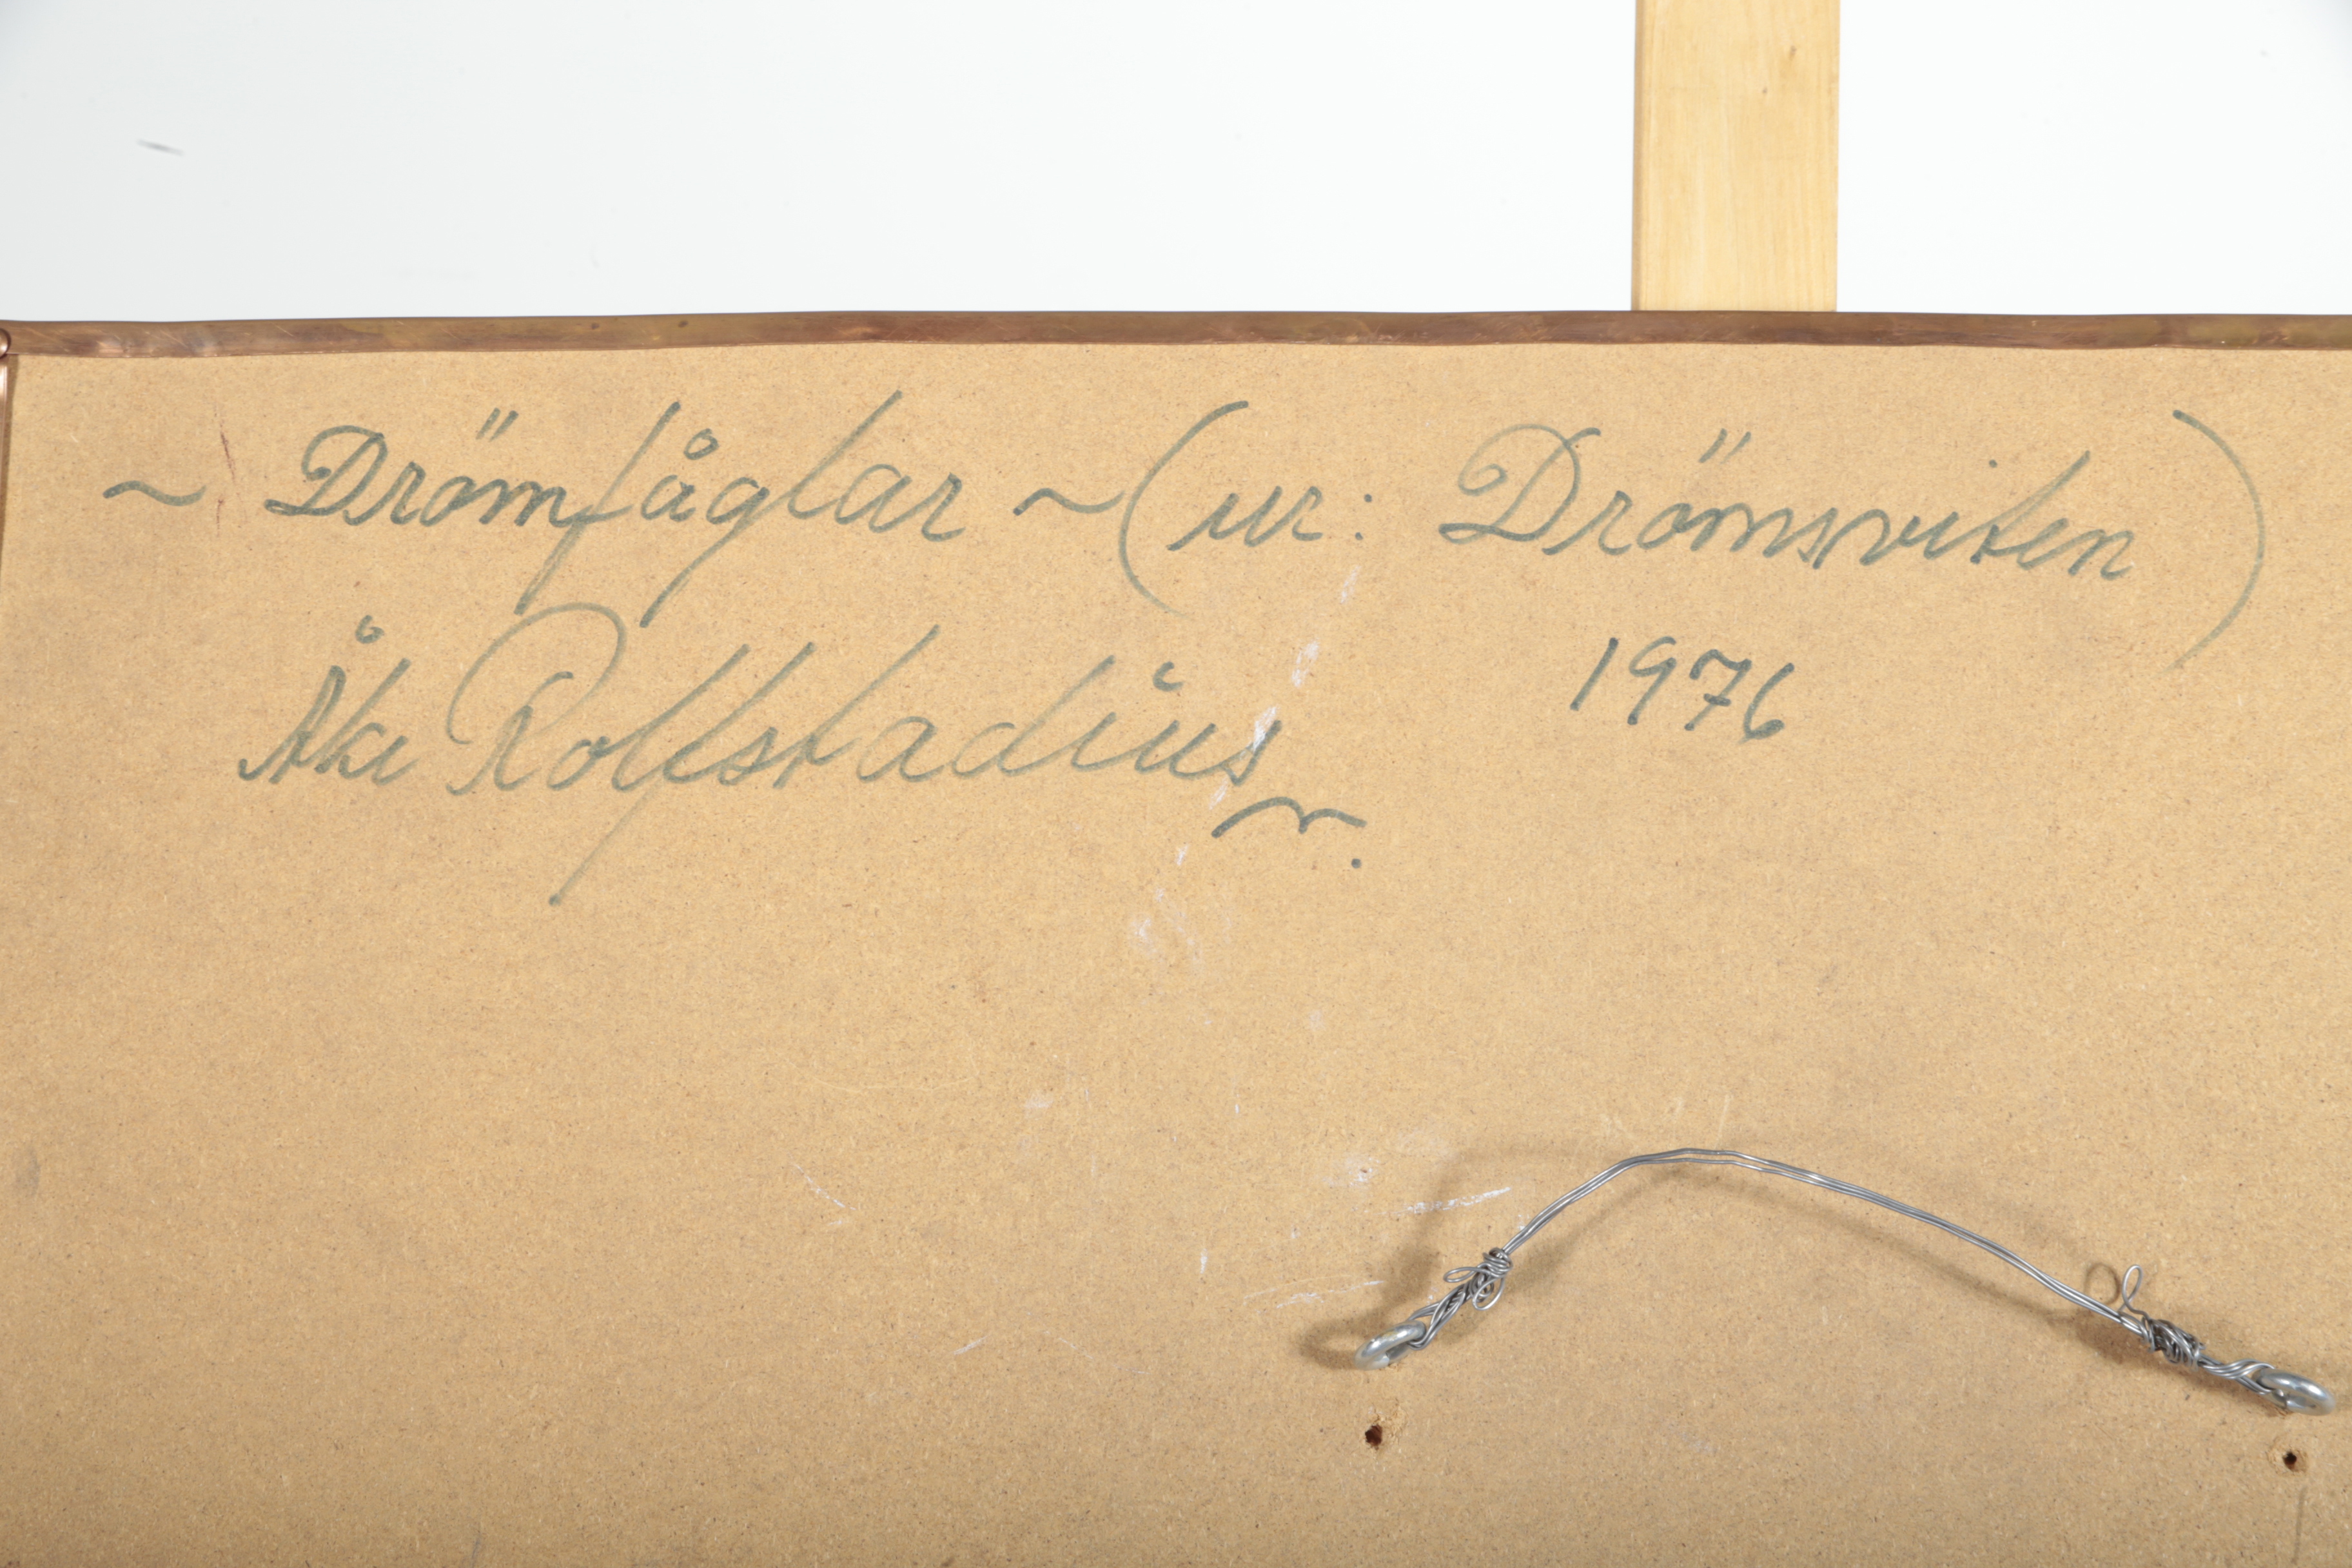 ~ Drömfåglar ~ (ur: Drömsviten)
Åke Rolfstadius 1976